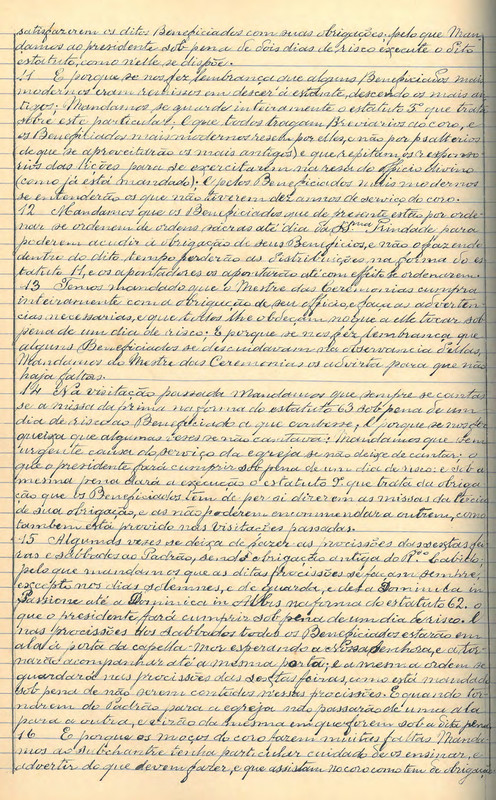 satisfazerem os ditos Beneficiados com suas obrigações. pelo que Man-
damos ao presidente sob pena de dois dias de risco execute o dito
estatuto, como nelle se dispõe.
11 E porque se nos fez lembrança que alguns Beneficiados mais
modernos eram remissos em descer á estante, descendo os mais an-
tigos; Mandamos se guarde inteiramente o estatuto 5º que trata
sobre este particular. E que todos tragam Breviarios ao coro, e
os Beneficiados mais modernos resem por elles, e não por psalterios
de que se aproveitarão os mais antigos; e que repitam os responso-
rios das lições para se exercitarem na resa do officio divino
(como já está mandado). E pelos Beneficiados mais modernos
se entenderão os que não tiverem dez annos de serviço do coro.
12 Mandamos que os Beneficiados que de presente estão por orde-
nar se ordenem de ordens sacras até dia da SSma Trindade para
poderem acudir á obrigação de seus Beneficios, e não o fazendo
dentro do dito tempo perderão as distribuições, na forma do es-
tatuto 11, e os apontadores os apontarão até com effeito se ordenarem.
13 Temos mandado que o Mestre das Ceremonias cumpra
inteiramente com a obrigação de seu officio, e faça as adverten-
cias necessarias, e que todos lhe obedeçam no que a elle tocar sob
pena de um dia de risco; E porque se nos fez lembrança que
alguns Beneficiados se descuidavam na observancia dellas,
Mandamos ao Mestre das Ceremonias os advirta para que não
haja faltas.
14 Na visitação passada Mandamos que sempre se cantas-
se a missa da prima na forma do estatuto 63 sob pena de um
dia de risco ao Beneficiado a que coubesse, E porque se nos fez
queixa que algumas vezes se não cantava; Mandamos que sem
urgente causa do serviço da egreja se não deixe de cantar; o
que o presidente fará cumprir sob pena de um dia de risco: e sob a
mesma pena dará á execução o estatuto 9º que trata da obriga-
ção que os Beneficiados têm de per-si dizerem as missas da terça
de sua obrigação, e as não poderem encommendar a outrem, como
tambem está provido nas visitações passadas.
15 Algumas vezes se deixa de fazer as procissões das sextas fei-
ras e sabbados ao Padrão, sendo obrigação antiga do Rdo Cabido;
pelo que mandamos que as ditas procissões se façam sempre,
excepto nos dias solemnes, e de guarda, e desta Dominica in
Passione até a Dominica in Albis na forma do estatuto 62. o
que o presidente fará cumprir sob pena de um dia de risco. E
nas procissões dos sabbados todos os Beneficiados estarão em
ala á porta da capella-Mor esperando a Nossa Senhora, e a tor-
narão acompanhar até a mesma porta; e a mesma ordem se
guardará nas procissões das sextas feiras, como está mandado
sob pena de não serem contados nessas procissões. E quando tor-
narem do Padrão para a egreja não passarão de uma ala
para a outra, e virão da mesma em que forem sob a dita pena.
16 E porque os moços do coro fazem muitas faltas Manda-
mos ao Subchantre tenha particular cuidado de os ensinar, e
advertir do que devem fazer, e que assistam no coro como tem de obrigação